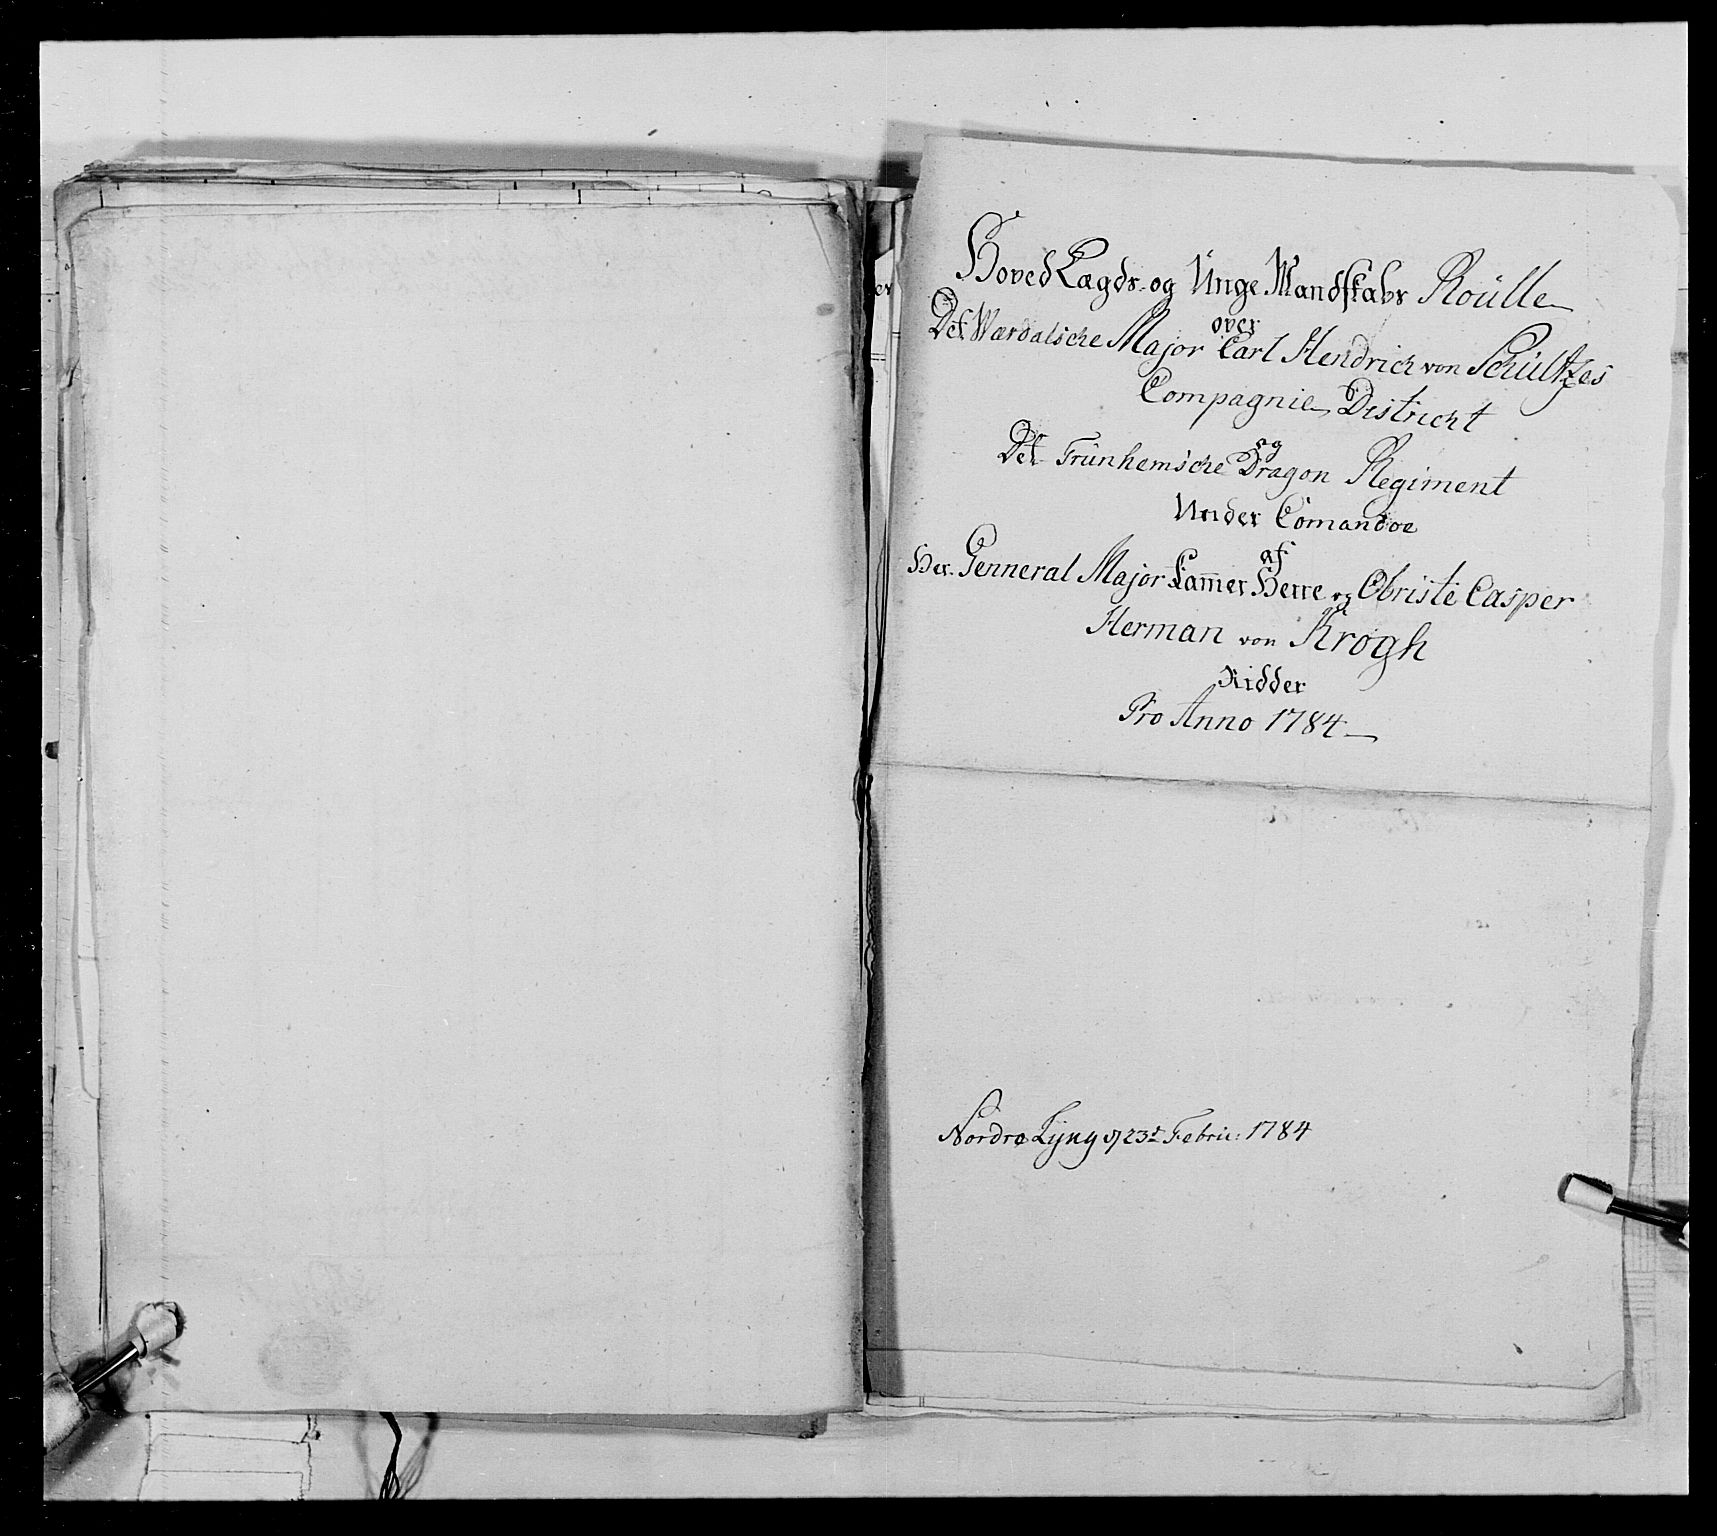 Hoved Lægds- og Unge Mandskabs Roülle
over
Det Wærdalsche Major Carl Hendrich von Schültzes
Compagnie Districht
og
Det Trünhemsche Dragon Regiment
Under Comandoe
af
Her. Genneral Major Kam̅er Herre og Obriste Casper
Herman von Krogh
Ridder
Pro Anno 1784
Nordre Lyng d 23de Febru: 1784